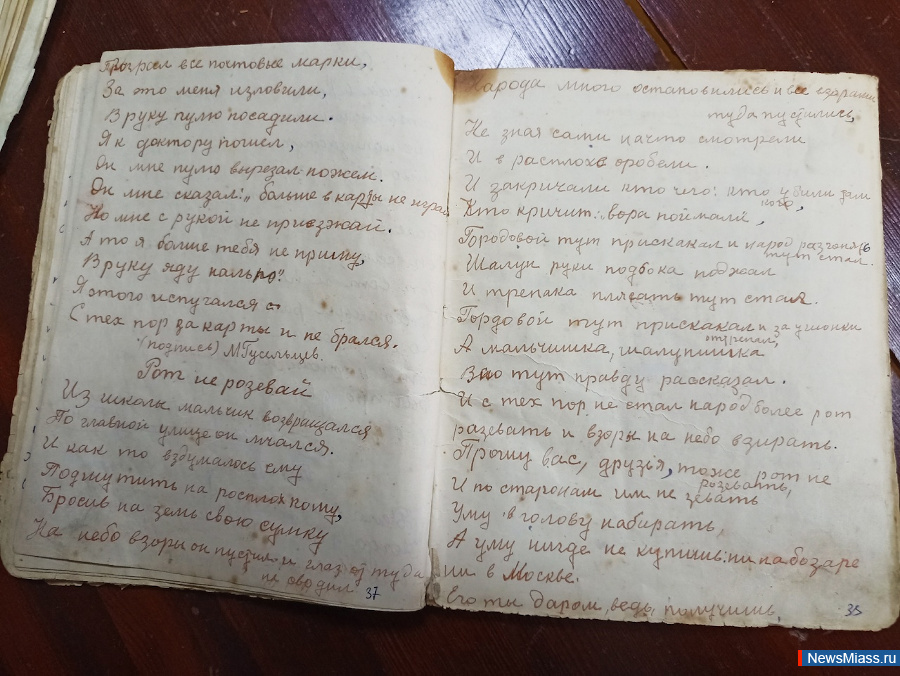 Прозрал все почтовые марки,
За это меня изловили,
В руку пулю посадили.
Я к доктору пошел,
Он мне пулю вырезал ножем.
Он мне сказал: „больше в карты не играй
Но мне с рукой не приезжай.
А то я больше тебя не приму,
В руку яду
Я этого испугался
С тех пор за карты и не брался.
(подпись) М Гусильцев.
Рот не розевай
Из школы мальчик возвращался
По главной улице он мчался.
И как то вздумалось ему
Подшутить на росплох кому,
Бросив на земь свою сумку
На небо взоры он пустил и глаз от туда
не сводил
37
Народа много остановились и все взорами
туда пустились,
Не зная сами на что смотрели
И в расплохе оробели.
И закричали кто чего: кто убили там
кого,
Кто кричит: вора поймали,
Городовой тут прискакал и народ разгонять
тут стал.
Шалун руки подбока поджал
И трепака плясать тут стал.
Гордовой тут прискакал и за ушонки
А мальчишка, шалунишка
Всю тут правду рассказал.
И с тех пор не стал народ более рот
разевать и взоры на небо взирать.
Прошу вас, друзья, тоже рот не
розевать,
И по старонам им не зевать
Уму в голову набирать,
А уму нигде не купишь: ни на бозаре
ни в Москве.
Его ты даром, ведь получишь
35
NewsMiass.ru